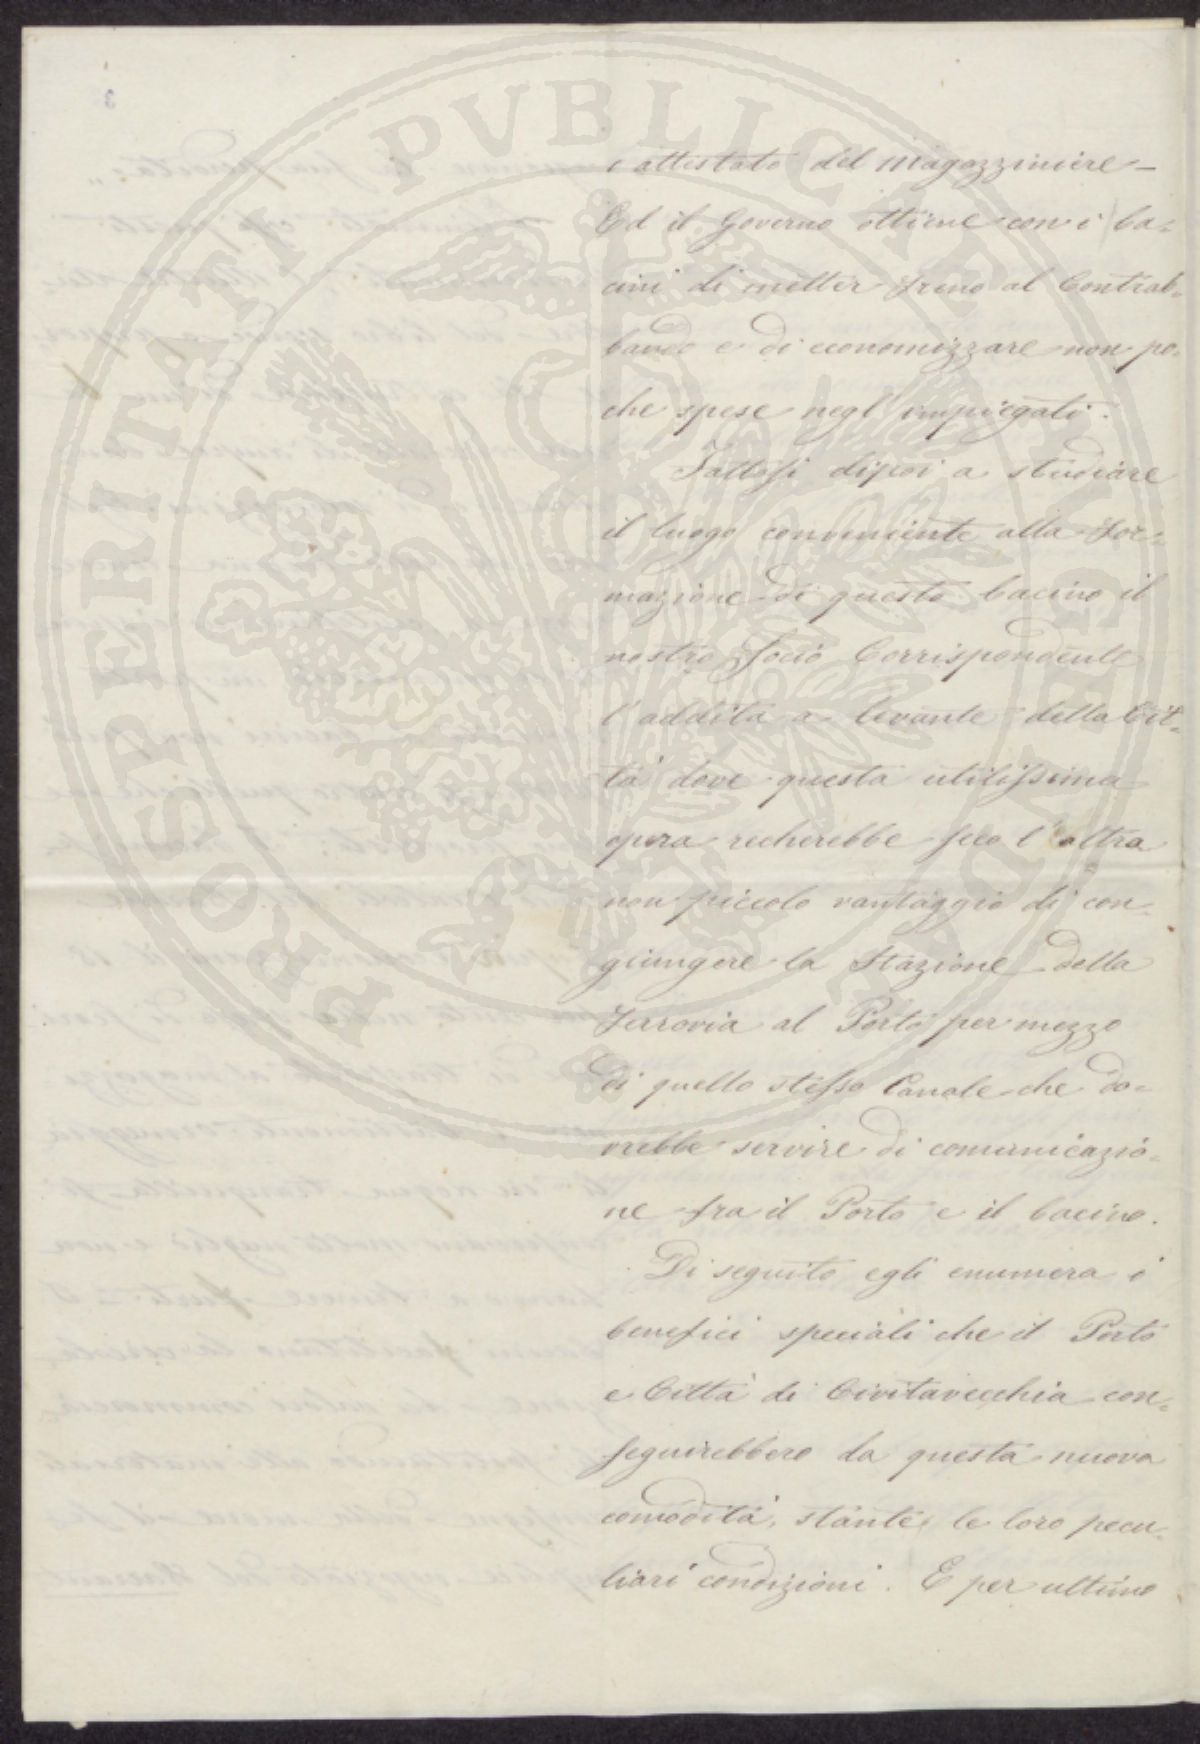 e attestato del Magazziniere –
Ed il Governo ottiene con i ba-
cini di metter freno al Contrab-
bando e di economizzare non po-
che spese negl'impiegati.
Fattosi dipoi a studiare
il luogo conveniente alla for-
mazione di questo bacino il
nostro Socio Corrispondente
l'addita a levante della Cit-
tà dove questa utilissima
opera recherebbe seco l'altro
non piccolo vantaggio di con-
giungere la Stazione della
Ferrovia al Porto per mezzo
di quello stesso Canale che do-
vrebbe servire di comunicazio-
ne fra il Porto e il bacino.
Di seguito egli enumera i
benefici speciali che il Porto
e Città di Civitavecchia con-
seguirebbero da questa nuova
comodità, stante le loro pecu-
liari condizioni. E per ultimo
PROSPERITATI PVBLICAE AVGENDAE